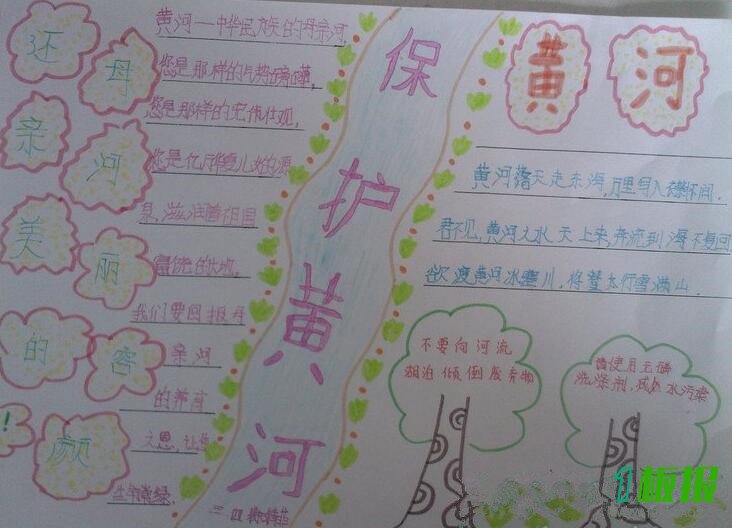 还母
亲河
美丽
的容
颜!
黄河一中华民族的母亲河
您是那样的气势磅礴,
您是那样的宏伟壮观,
您是亿万华夏儿女的源
泉,滋润着祖国
富饶的大地,
我们要回报母
亲河
的养育
之恩,让您
保护黄河
二四
黄河
黄河落天走东海,万里写入襟怀间.
君不见,黄河之水天上来,奔流到海不复回
欲渡黄河冰塞川,将登太行雪满山.
不要向河流
湖泊倾倒废弃物
请使用无磷
洗涤剂,减少水污染
板报